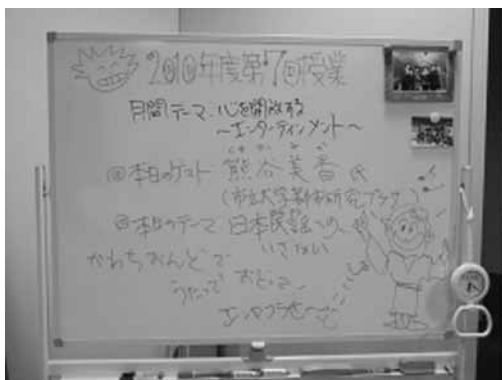 2010年度第7回授業
月間テーマ:心を開放する
〜エンターテインメント〜
くま が み か
◎本日のゲスト 熊谷美香氏
(市立大学都市研究プラザ)
◎本日のテーマ 日本民謡への
いざない
かわちおんどで
うたって おどって
エンタフラせ〜